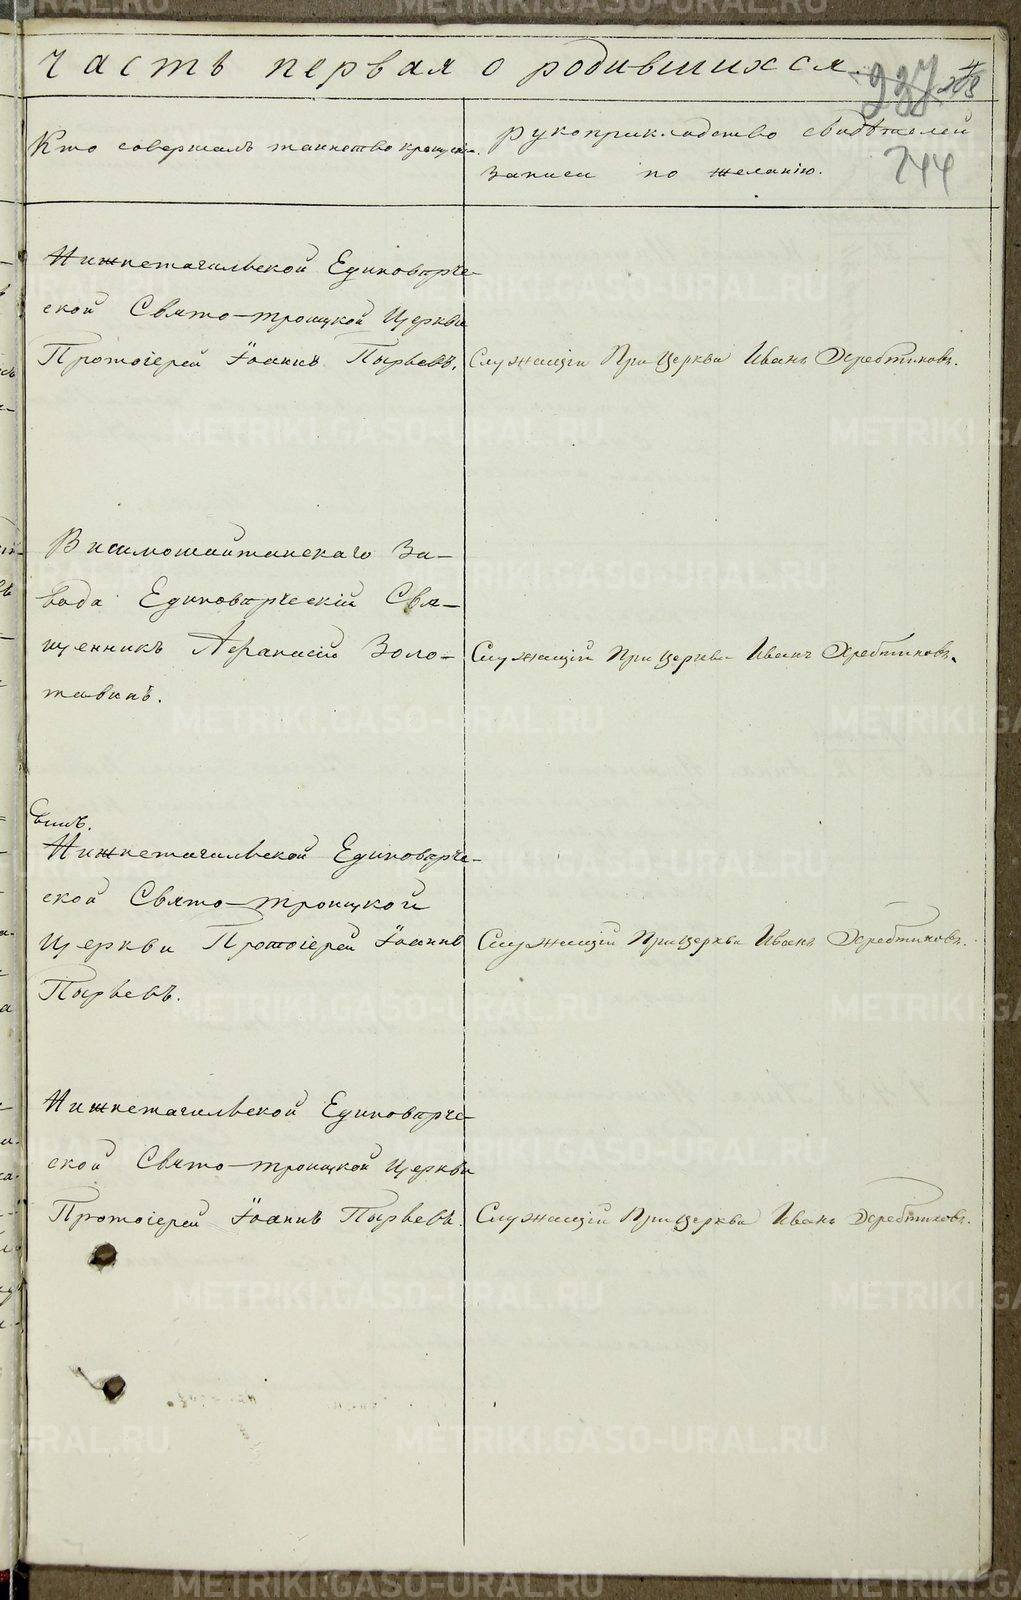 Часть первая о родившихся.
237
244
Кто совершалъ таинство крещенія.
Рукоприкладство свидѣтелей
записи по желанію.
Нижнетагильской Единовѣрче-
ской Свято-троицкой Церкви
Протоіерей Іоаннъ Пырьевъ.
Служащій При Церкви Иванъ Жеребтиковъ.
Висимошайтанскаго За-
вода Единовѣрческій Свя-
щенникъ Аѳанасій Золо-
тавинъ.
Служащій При Церкви Иванъ Жеребтиковъ.
Нижнетагильской Единовѣрче-
ской Свято-троицкой
Церкви Протоіерей Іоаннъ
Пырьевъ.
Служащій При Церкви Иванъ Жеребтиковъ.
Нижнетагильской Единовѣрче-
ской Свято-троицкой Церкви
Протоіерей Іоаннъ Пырьевъ.
Служащій При Церкви Иванъ Жеребтиковъ.
METRIKI.GASO-URAL.RU